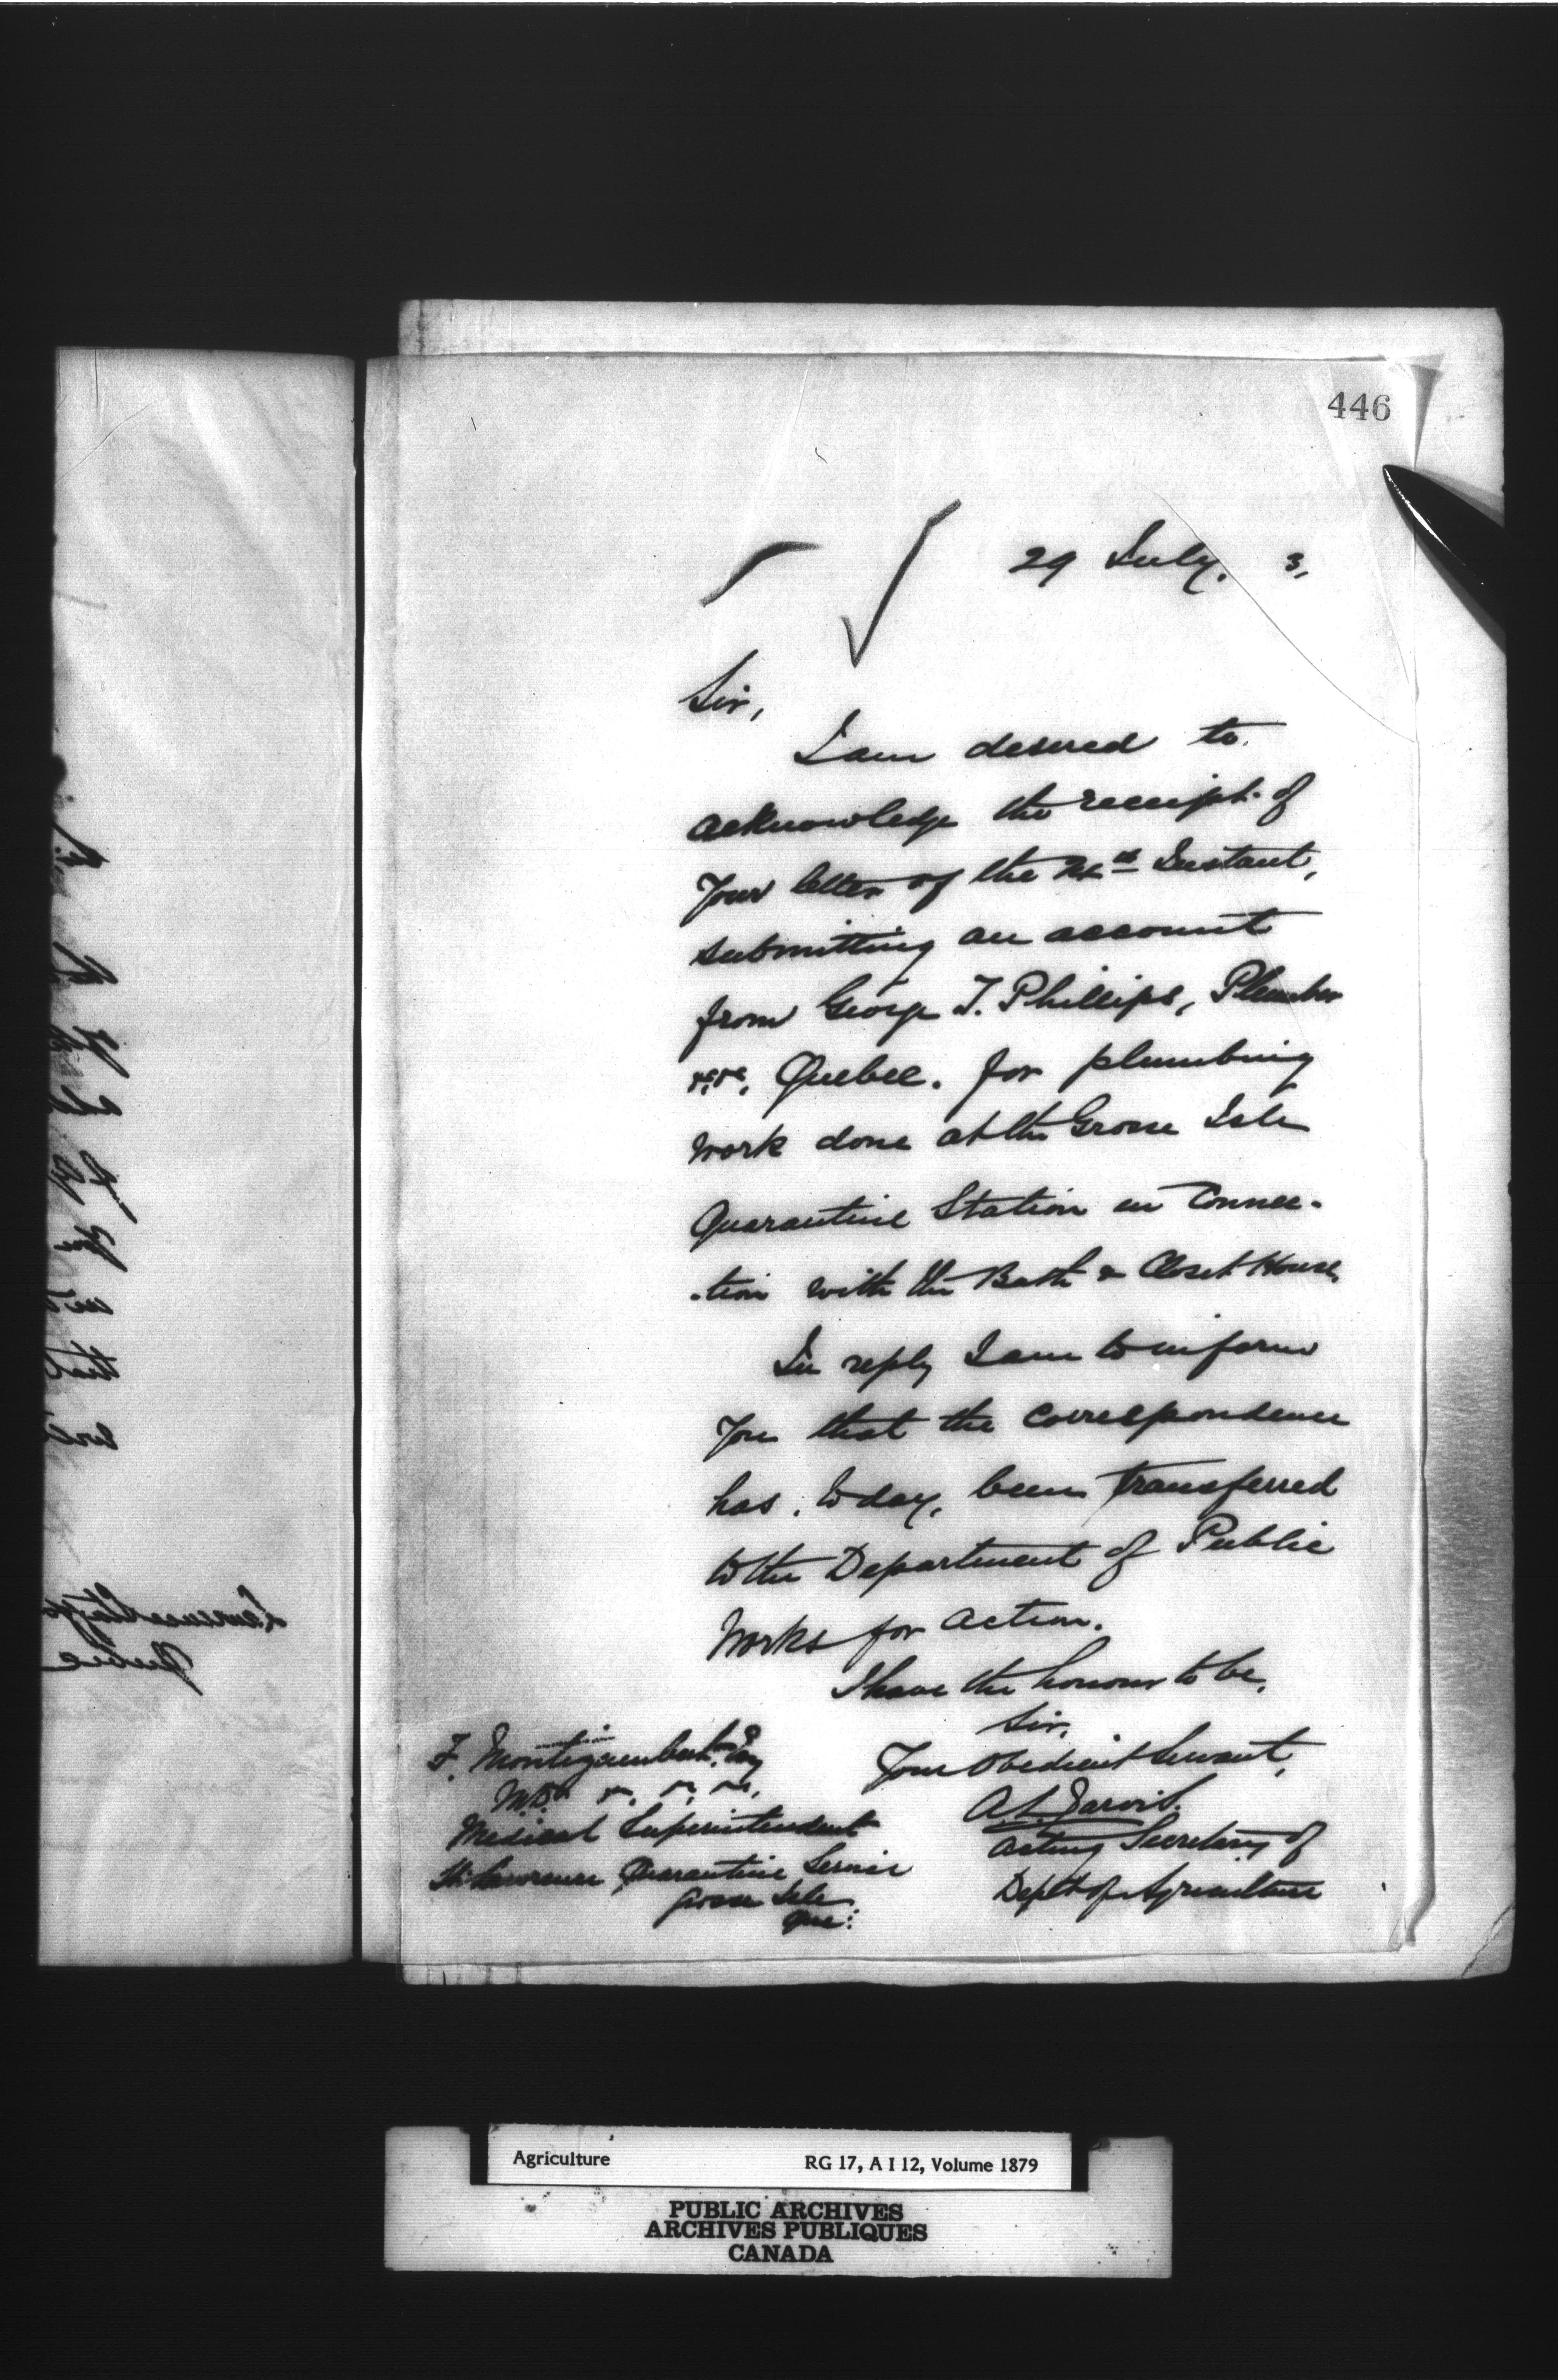 446
29 July. 3,
Sir,
I am desired to
acknowledge the receipt of
Your letter of the Instant,
submitting an account
from George T. Phillips, Plumber
&c, &c, Quebec. for plumbing
work done at the Grosse Isle
Quarantine Station in Connec-
-tion with the Bath & Closet House,
In reply I am to inform
You that the Correspondence
has, today, been transferred
to the Department of Public
Works for action.
I have the honour to be,
Sir,
Your Obedient Servant,
A. L. Jarvis.
Acting Secretary of
Dept of Agriculture
F. Montizambert, Esq
M.D. &c, &c, &c,
Medical Superintendent
St. Lawrence Quarantine Service
Grosse Isle
Que:
Lawrence
Quebec
Agriculture RG 17, A I 12, Volume 1879
PUBLIC ARCHIVES
ARCHIVES PUBLIQUES
CANADA